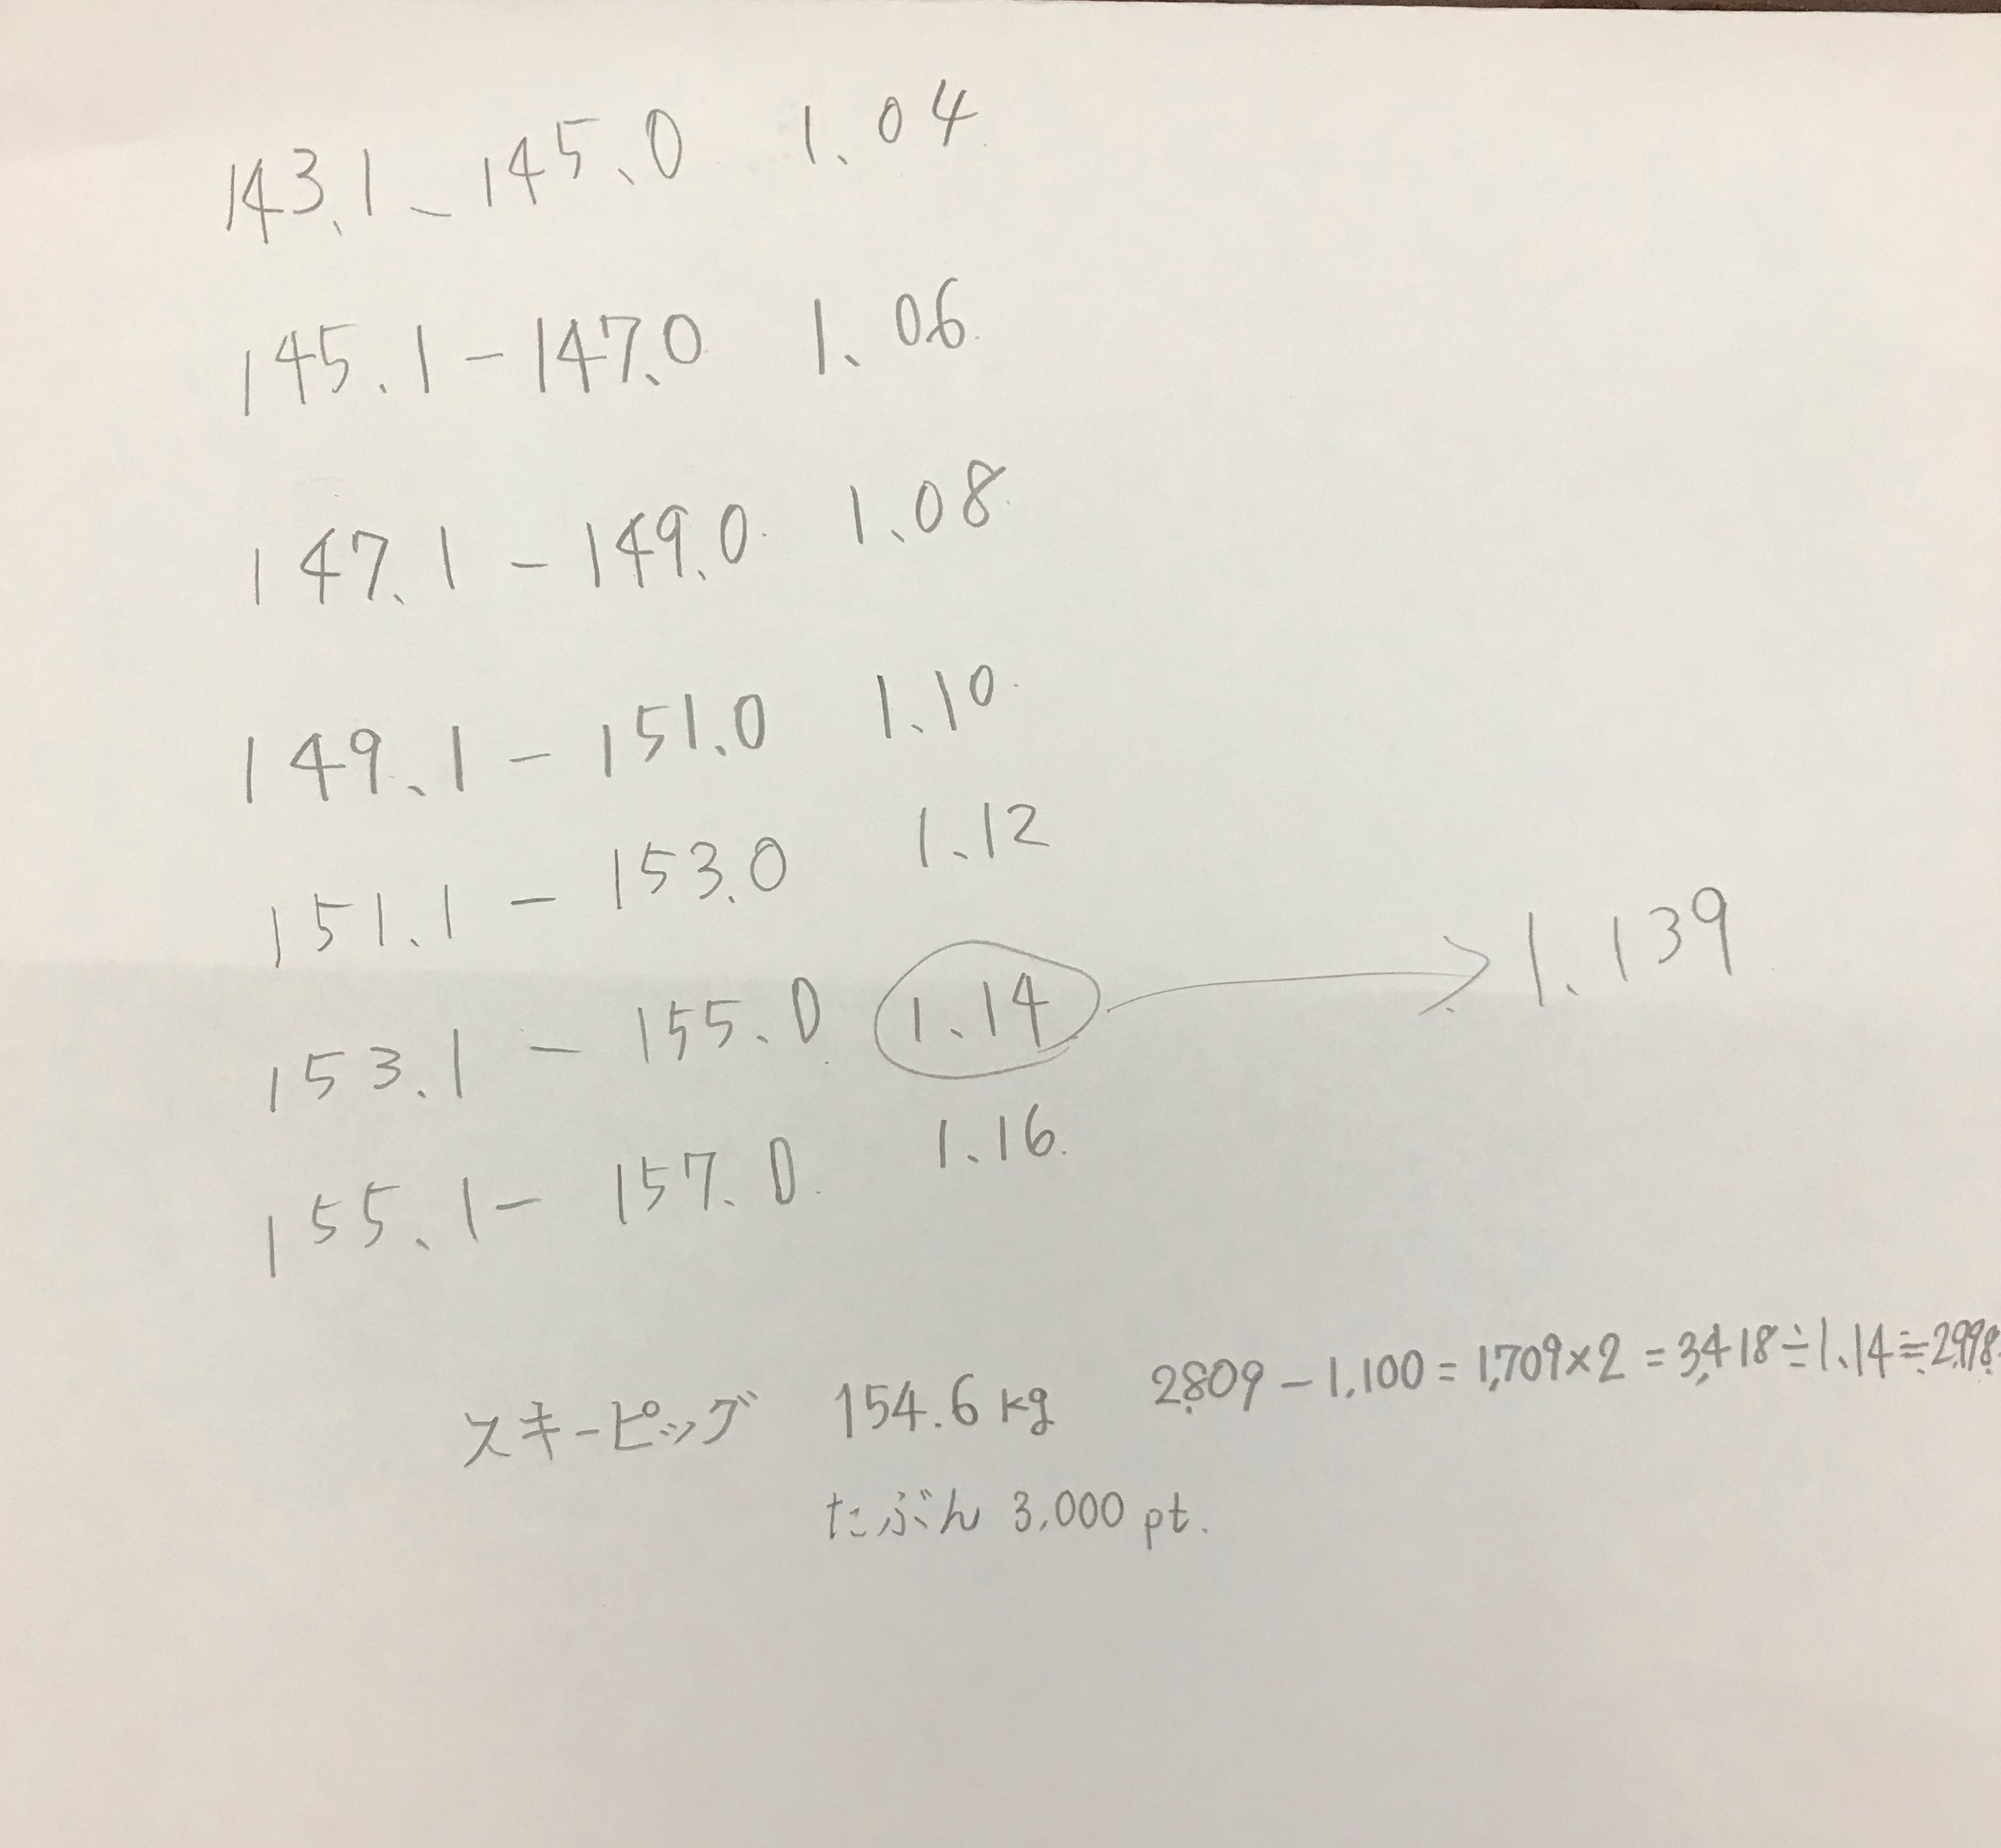 143.1-145.0 1.04
145.1-147.0 1.06
147.1-149.0 1.08
149.1-151.0 1.10
151.1-153.0 1.12
153.1-155.0 1.14 → 1.139
155.1-157.0 1.16
スキーピッグ 154.6kg 2,809-1,100=1,709×2=3,418÷1.14≒2,998.
たぶん 3,000 pt.